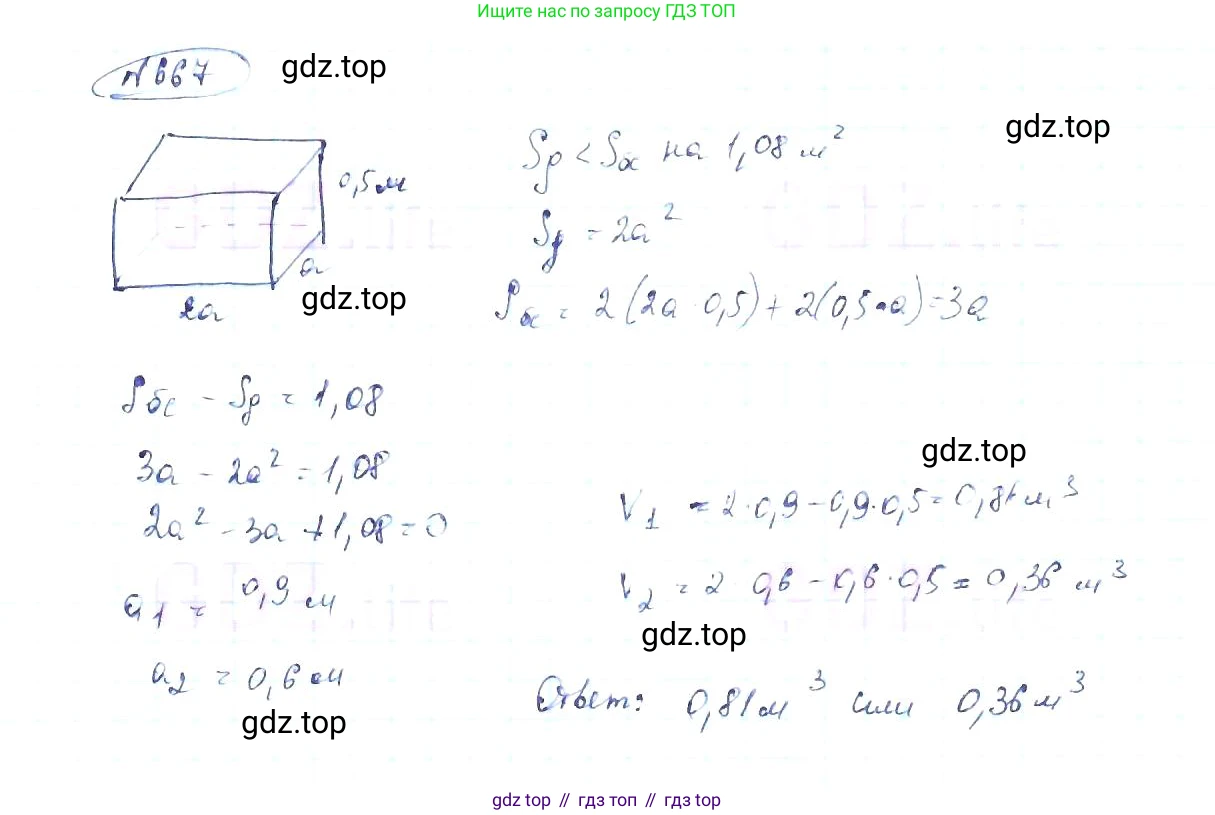 Ищите нас по запросу ГДЗ ТОП
№667
gdz.top
gdz.top
0,5 м
a
2a
gdz.top
Sд < Sбс на 1,08 м²
Sд = 2a²
Sбс = 2(2a · 0,5) + 2(0,5 · a) = 3a
Sбс - Sд = 1,08
3a - 2a² = 1,08
2a² - 3a + 1,08 = 0
a₁ = 0,9 м
a₂ = 0,6 м
gdz.top
gdz.top
V₁ = 2 · 0,9 - 0,9 · 0,5 = 0,81 м³
V₂ = 2 · 0,6 - 0,6 · 0,5 = 0,36 м³
gdz.top
Ответ: 0,81 м³ или 0,36 м³
gdz top // гдз топ // gdz top